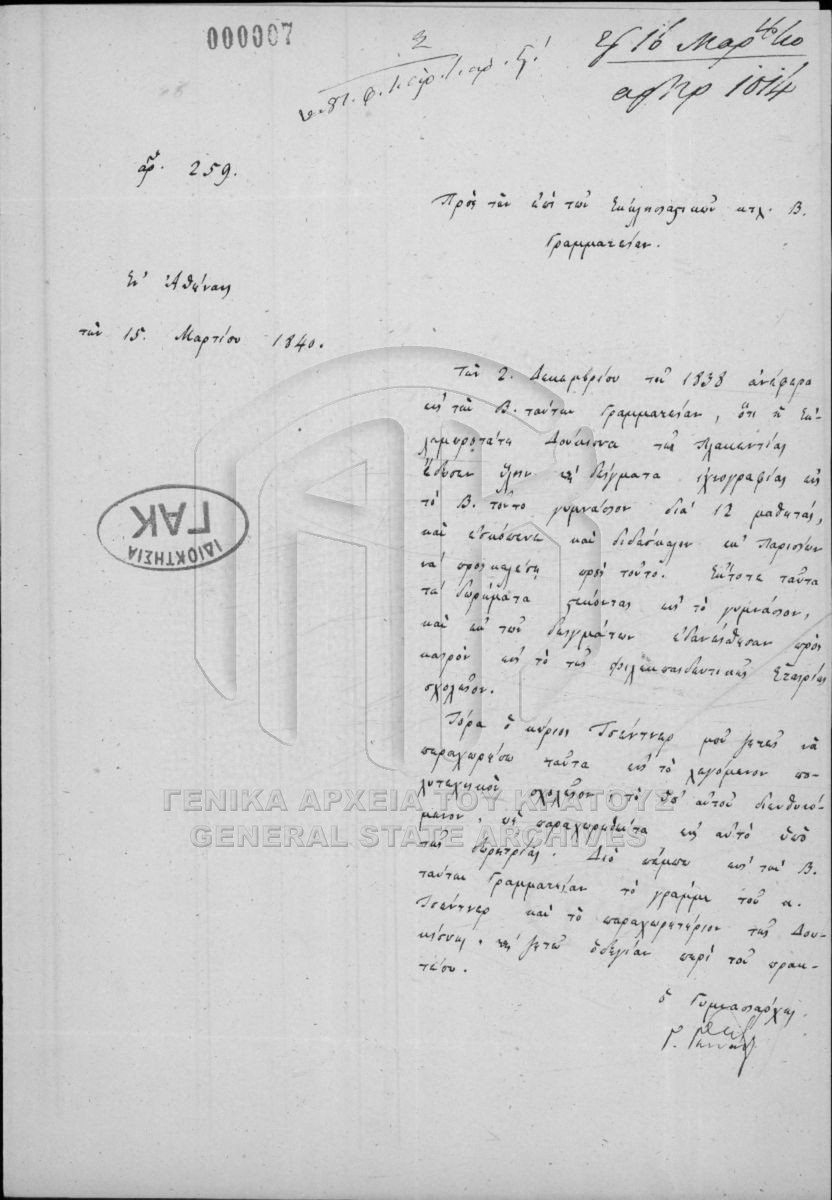 000007
ἀρ. 259.
Ἐν Ἀθήναις
τὴν 15. Μαρτίου 1840.
16 Μαρτ 40
ἀρ πρ 1014
Πρὸς τὴν ἐπὶ τῶν Ἐκκλησιαστικῶν κτλ. Β.
Γραμματείαν.
Τὴν 2. Δεκεμβρίου τοῦ 1838 ἀνέφερα
εἰς τὴν Β. ταύτην Γραμματείαν, ὅτι ἡ Ἐκ-
λαμπροτάτη Δούκισσα τῆς Πλακεντίας
ἔδωσεν ὕλην καὶ δείγματα ἰχνογραφίας εἰς
τὸ Β. τοῦτο γυμνάσιον διὰ 12 μαθητάς,
καὶ ἐσκόπευε καὶ διδάσκαλον ἐκ Παρισίων
νὰ προσκαλέσῃ πρὸς τοῦτο. Ἔκτοτε ταῦτα
τὰ δωρήματα εἰς τὸ γυμνάσιον,
καὶ ἐκ τῶν δειγμάτων ἐδανείσθησαν πρὸς
καιρὸν εἰς τὸ τῆς φιλεκπαιδευτικῆς Ἑταιρίας
σχολεῖον.
Τόρα ὁ κύριος Τσέντνερ μοῦ ζητεῖ νὰ
παραχωρήσω ταῦτα εἰς τὸ λεγόμενον πο-
λυτεχνικὸν σχολεῖον τὸ ὑπ' αὐτοῦ διευθυνό-
μενον, ὡς παραχωρηθέντα εἰς αὐτὸ ὑπὸ
τῆς δωρητρίας. Διὸ πέμπω εἰς τὴν Β.
ταύτην Γραμματείαν τὸ γράμμα τοῦ κ.
Τσέντνερ καὶ τὸ παραχωρητήριον τῆς Δου-
κίσσης, καὶ ζητῶ ὁδηγίαν περὶ τοῦ πρακ-
τέου.
ὁ Γυμνασιάρχης
Γ. Γεννάδιος
ΙΔΙΟΚΤΗΣΙΑ
ΓΑΚ
ΓΕΝΙΚΑ ΑΡΧΕΙΑ ΤΟΥ ΚΡΑΤΟΥΣ
GENERAL STATE ARCHIVES